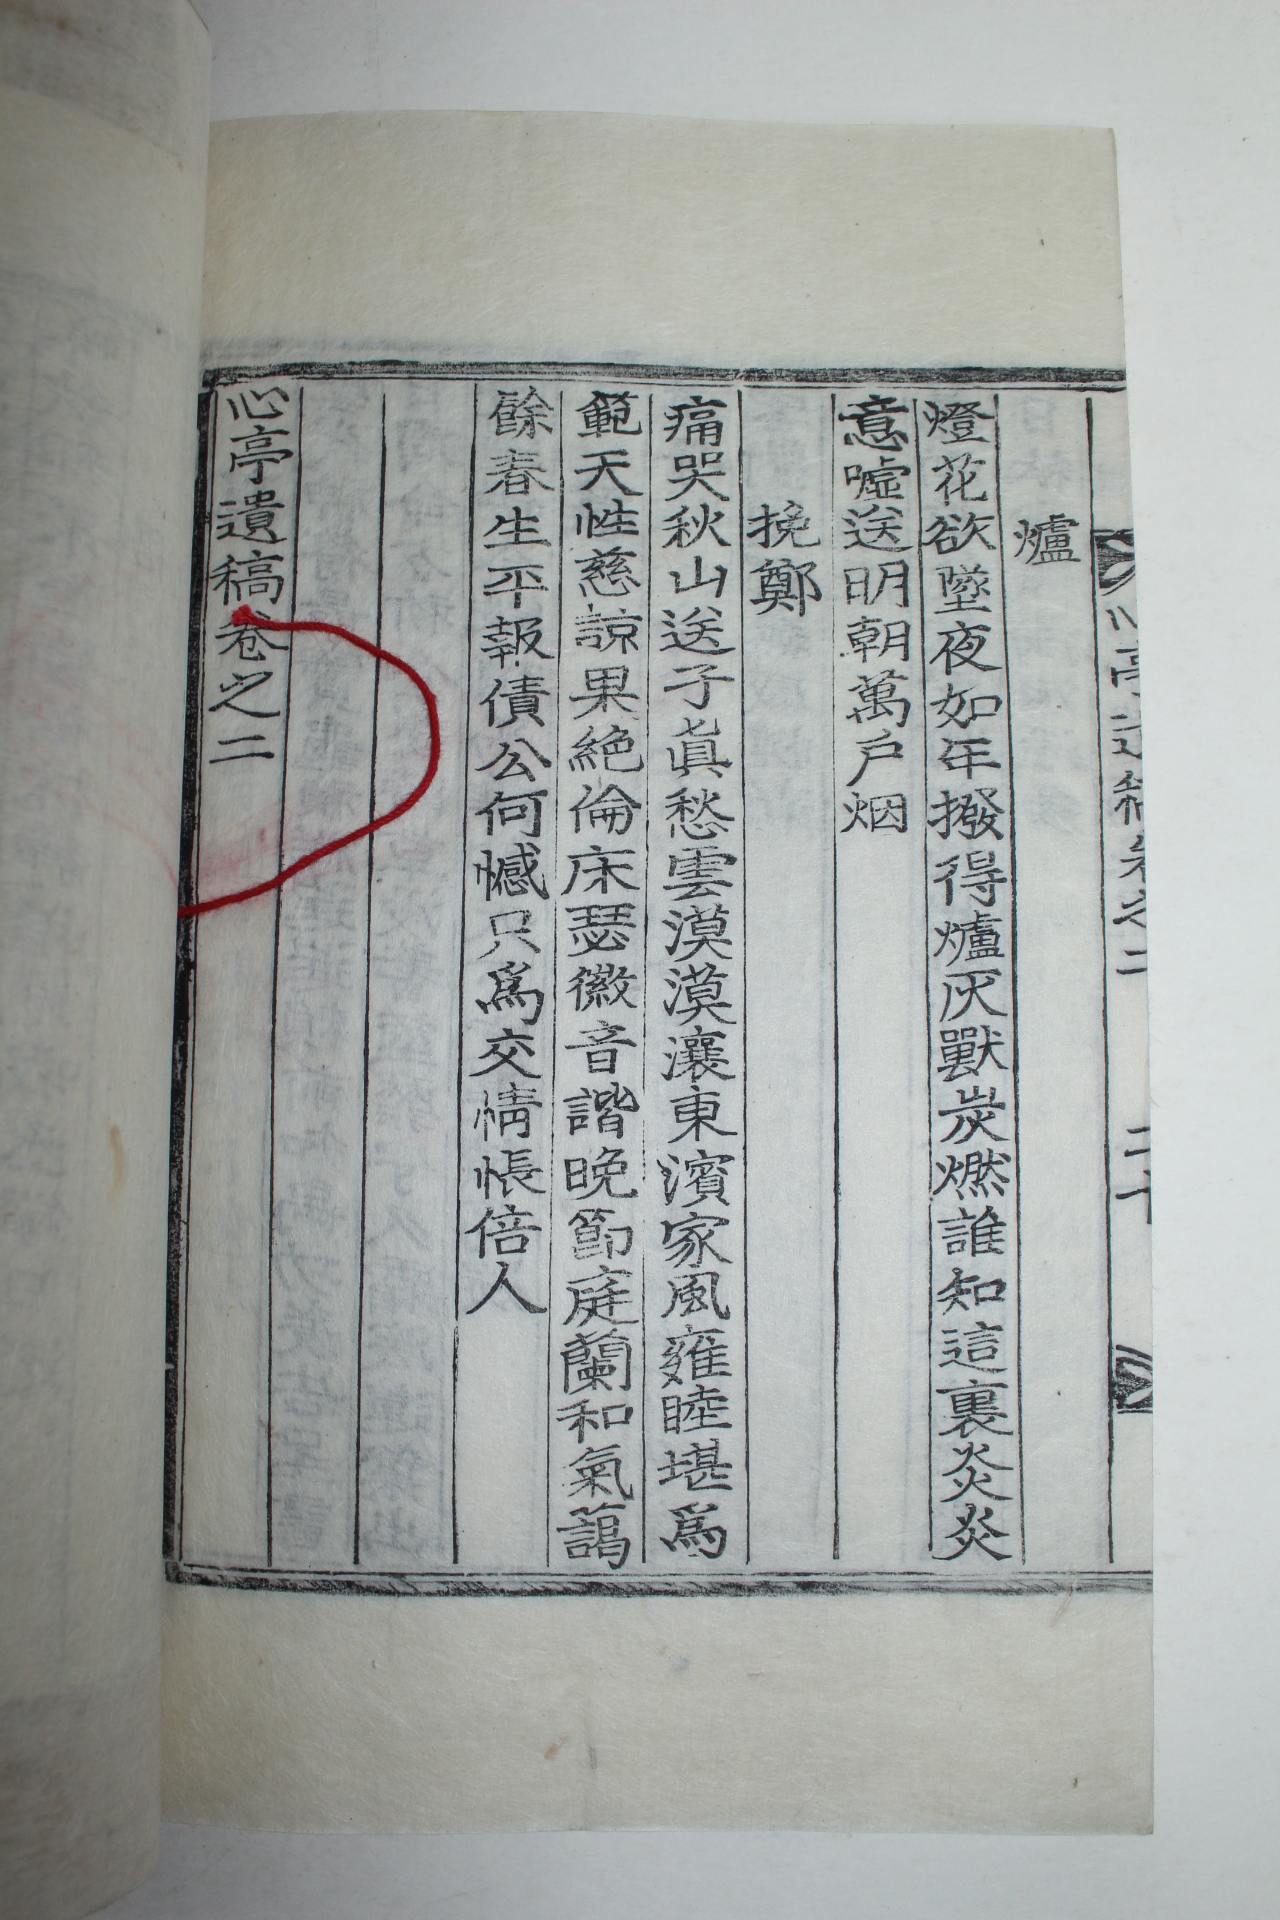 心亭遺稿卷之二
二十
爐
燈花欲墜夜如年撥得爐灰獸炭燃誰知這裏炎炎
意噓送明朝萬户烟
挽鄭
痛哭秋山送子眞愁雲漠漠瀼東濱家風雍睦堪爲
範天性慈諒果絶倫床瑟徽音諧晩節庭蘭和氣藹
餘春生平報債公何憾只爲交情悵倍人
心亭遺稿卷之二